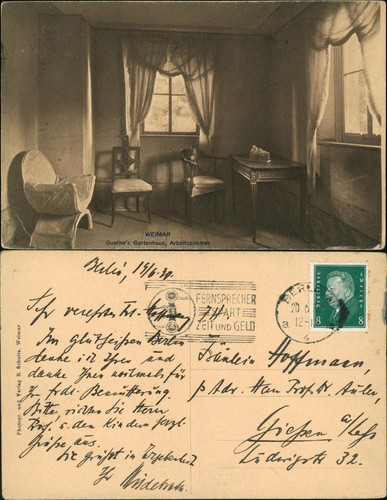 WEIMAR
Goethe's Gartenhaus, Arbeitszimmer
Photogr. und Verlag E. Schulte, Weimar
Berlin, 19/6.30.
Sehr verehrtes Frl. Hoffmann,
Im glühheißen Berlin
denke ich Ihrer und
danke Ihnen nochmals für
Ihre
Bitte, richten Sie Herrn
Prof. u. den Kindern herzl.
Grüße aus.
Sie grüßt in Ergebenheit
Ihr
FERNSPRECHER
SPART
ZEIT und GELD
BERLIN
20.6
12-1
a
Deutsches Reich
8 8
Fräulein Hoffmann,
p. Adr. Herrn Prof. Dr.
Gießen a/Lahn
Ludwigstr. 32.